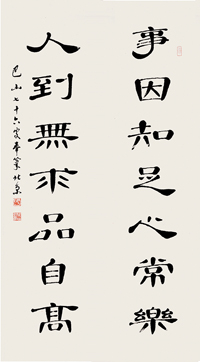 事因知足心常樂
人到無求品自高
巴山七十六叟奉筆北京